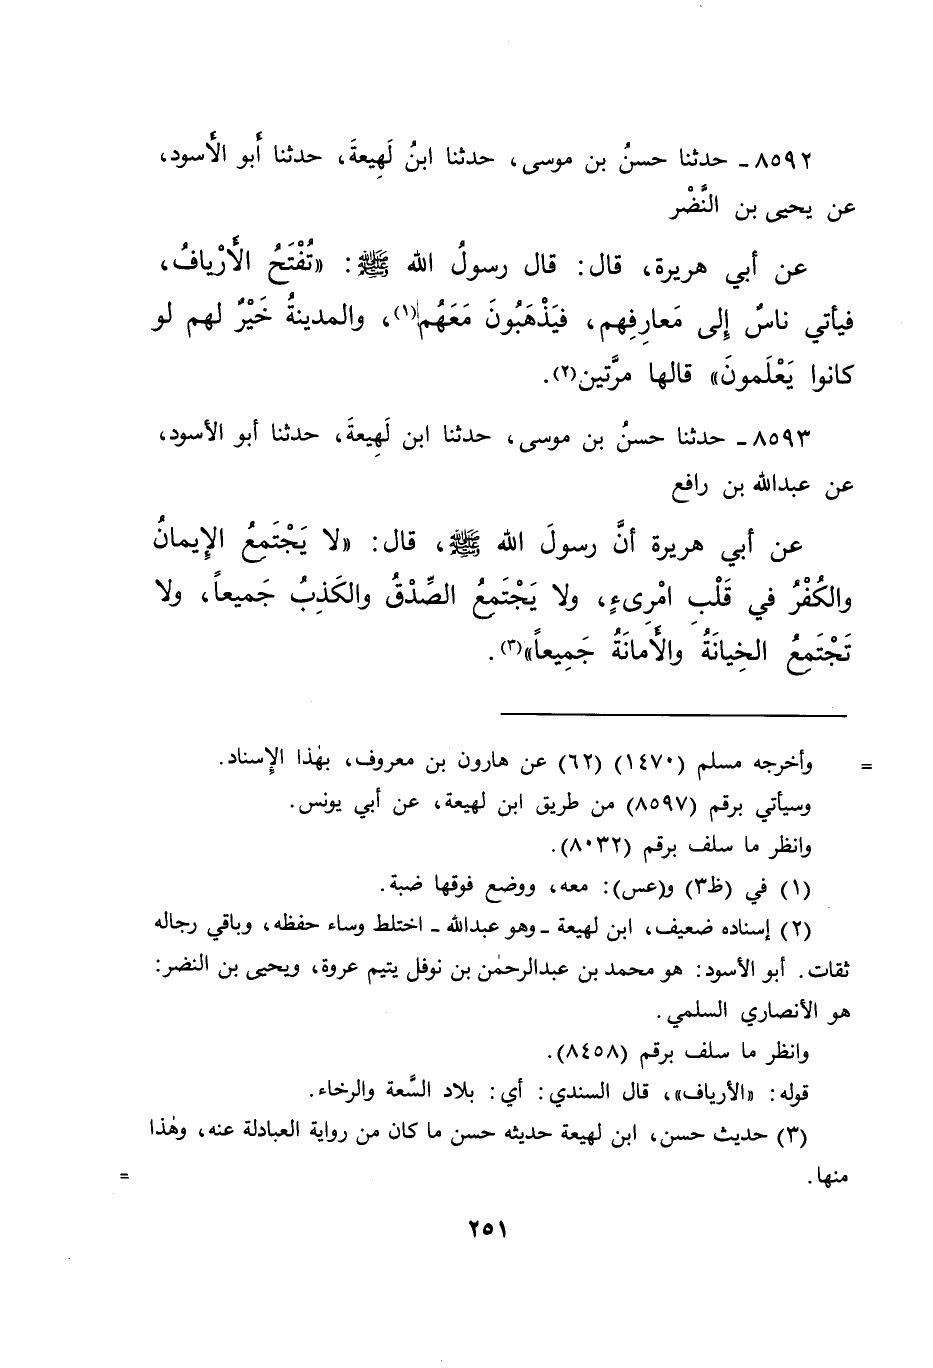 ٨٥٩٢ـ حدثنا حسنُ بن موسى، حدثنا ابنُ لَهِيعةَ، حدثنا أَبو الأَسود،
عن يحيى بن النَّضْر
عن أبي هريرة، قال: قال رسولُ الله ﷺ: «تُفْتَحُ الأَرْيافُ،
فيأتي ناسٌ إلى مَعارِفِهم، فيَذْهَبُونَ مَعَهُم(١)، والمدينةُ خَيْرٌ لهم لو
كانوا يَعْلَمونَ» قالها مرَّتين(٢).
٨٥٩٣ـ حدثنا حسنُ بن موسى، حدثنا ابن لَهِيعةَ، حدثنا أبو الأسود،
عن عبدالله بن رافع
عن أبي هريرة أنَّ رسولَ الله ﷺ، قال: «لا يَجْتَمِعُ الإيمانُ
والكُفْرُ في قَلْبِ امْرِىءٍ، ولا يَجْتَمِعُ الصِّدْقُ والكَذِبُ جَميعاً، ولا
تَجْتَمِعُ الخِيانَةُ والأَمانَةُ جَمِيعاً»(٣).
= وأخرجه مسلم (١٤٧٠) (٦٢) عن هارون بن معروف، بهٰذا الإسناد.
وسيأتي برقم (٨٥٩٧) من طريق ابن لهيعة، عن أبي يونس.
وانظر ما سلف برقم (٨٠٣٢).
(١) في (ظ٣) و(عس): معه، ووضع فوقها ضبة.
(٢) إسناده ضعيف، ابن لهيعة ـ وهو عبدالله ـ اختلط وساء حفظه، وباقي رجاله
ثقات. أبو الأسود: هو محمد بن عبدالرحمٰن بن نوفل يتيم عروة، ويحيى بن النضر:
هو الأنصاري السلمي.
وانظر ما سلف برقم (٨٤٥٨).
قوله: «الأرياف»، قال السندي: أي: بلاد السَّعة والرخاء.
(٣) حديث حسن، ابن لهيعة حديثه حسن ما كان من رواية العبادلة عنه، وهٰذا
منها. =
٢٥١